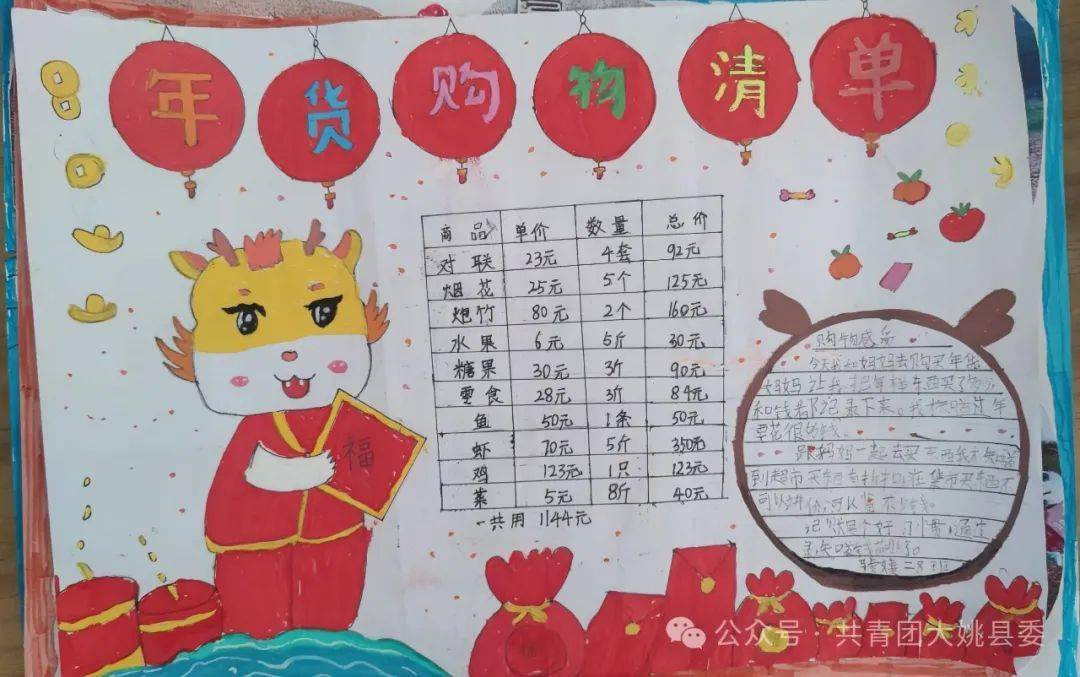 年货购物清单
商品 单价 数量 总价
对联 23元 4套 92元
烟花 25元 5个 125元
炮竹 80元 2个 160元
水果 6元 5斤 30元
糖果 30元 3斤 90元
零食 28元 3斤 84元
鱼 50元 1条 50元
虾 70元 5斤 350元
鸡 123元 1只 123元
菜 5元 8斤 40元
一共用 1144元
福
购物感受
今天我和妈妈去购买年货
妈妈让我把每样东西买了多少
和钱都记录下来。我
要花很多钱。
跟妈妈一起去买东西我才知道
到超市
可以讲价,可以省不少钱。
记账是个好习惯
公众号·共青团大姚县委